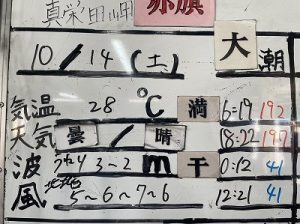 真栄田岬 赤旗
10/14(土) 大潮
気温 28℃ 満 6:19 192
天気 曇/晴 18:22 197
波 うねり 3~2m 干 0:12 41
風 北北 5~6~7~6 12:21 41